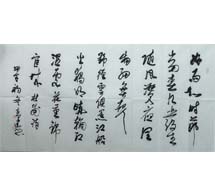 好雨知時節
當春乃發生
隨風潛入夜
潤物細無聲
野徑雲俱黑江船
火獨明曉看紅
濕處花重錦
官城杜甫詩
甲午